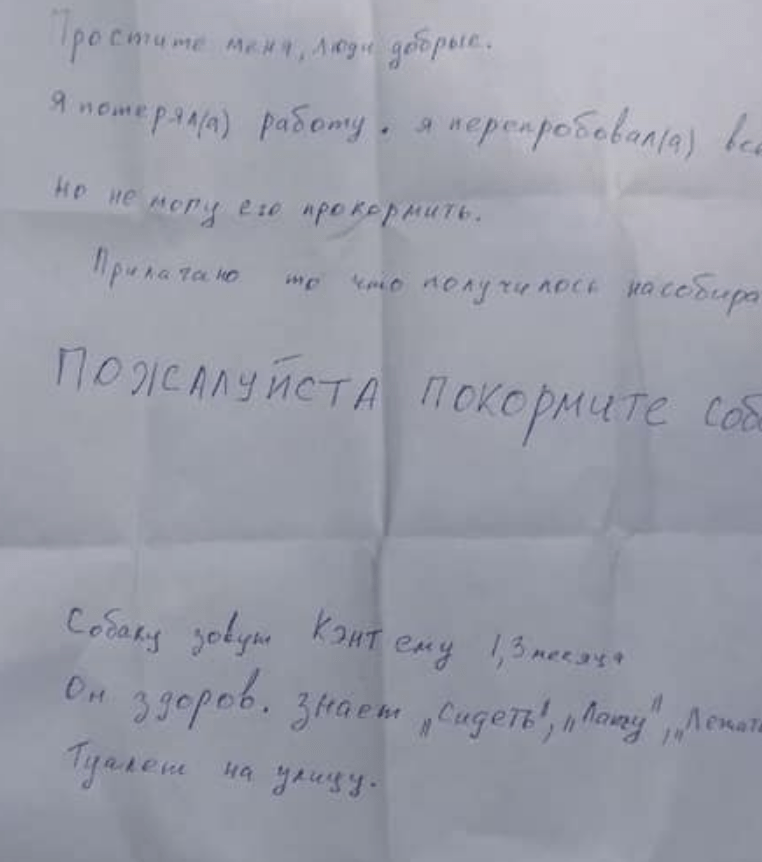 Простите меня, люди добрые.
Я потерял(а) работу. я перепробовал(а) вс
но не могу его прокормить.
Прилагаю то что получилось насобира
ПОЖАЛУЙСТА ПОКОРМИТЕ СОБ
Собаку зовут Кэнт ему 1,3 месяца
Он здоров. Знает „Сидеть", „Лапу", „Лежать
Туалет на улицу.